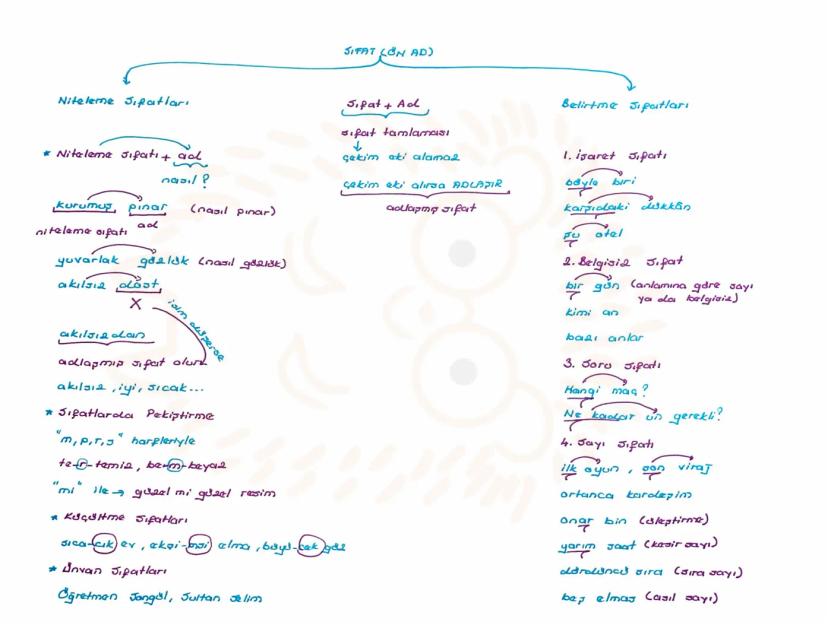 SIFAT (ÖN AD)
Niteleme Sıfatları
* Niteleme sıfatı + ad
nasıl?
kurumuş pınar (nasıl pınar)
niteleme sıfatı ad
yuvarlak gözlük (nasıl gözlük)
akılsız dost
X
isim düşerse
akılsızdan
adlaşmış sıfat olur
akılsız, iyi, sıcak...
* Sıfatlarda Pekiştirme
"m,p,r,s" harfleriyle
te-r-temiz, be-m-beyaz
"mi" ile → güzel mi güzel resim
* Küçültme Sıfatları
sıca-cık ev, ekşi-msi elma, büyü-cek göz
* Ünvan Sıfatları
Öğretmen Songül, Sultan Selim
Sıfat + Ad
sıfat tamlaması
çekim eki alamaz
çekim eki alırsa ADLAŞIR
adlaşmış sıfat
Belirtme Sıfatları
1. İşaret Sıfatı
böyle biri
karşıdaki dükkân
şu otel
2. Belgisiz Sıfat
bir gün (anlamına göre sayı
ya da belgisiz)
kimi an
bazı anlar
3. Soru Sıfatı
Hangi maç?
Ne kadar un gerekli?
4. Sayı Sıfatı
ilk oyun, son viraj
ortanca kardeşim
onar bin (üleştirme)
yarım saat (kesir sayı)
dördüncü sıra (sıra sayı)
beş elmas (asıl sayı)